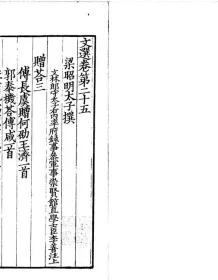 文選卷第二十五
梁昭明太子撰
文林郎守太子右內率府錄事參軍事崇賢館直學士臣李善注上
贈荅三
傅長虞贈何劭王濟一首
郭泰機荅傅咸一首